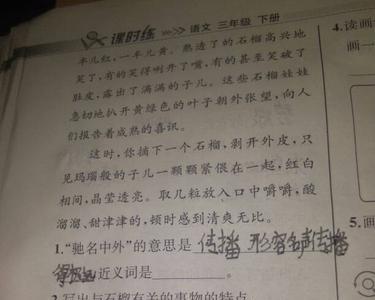 课时练 语文 三年级 下册
半儿红,一半儿黄。熟透了的石榴高兴地
笑了,有的笑得咧开了嘴,有的甚至笑破了
肚皮,露出了满满的子儿。这些石榴娃娃
急切地扒开黄绿色的叶子朝外张望,向人
们报告着成熟的喜讯。
这时,你摘下一个石榴,剥开外皮,只
见玛瑙般的子儿一颗颗紧偎在一起,红白
相间,晶莹透亮。取几粒放入口中嚼嚼,酸
溜溜、甜津津的,顿时感到清爽无比。
1.“驰名中外”的意思是 传播 形容名声传播
得极远 近义词是 。
2.写出与石榴有关的事物的特点
4.读画
画一
5.画